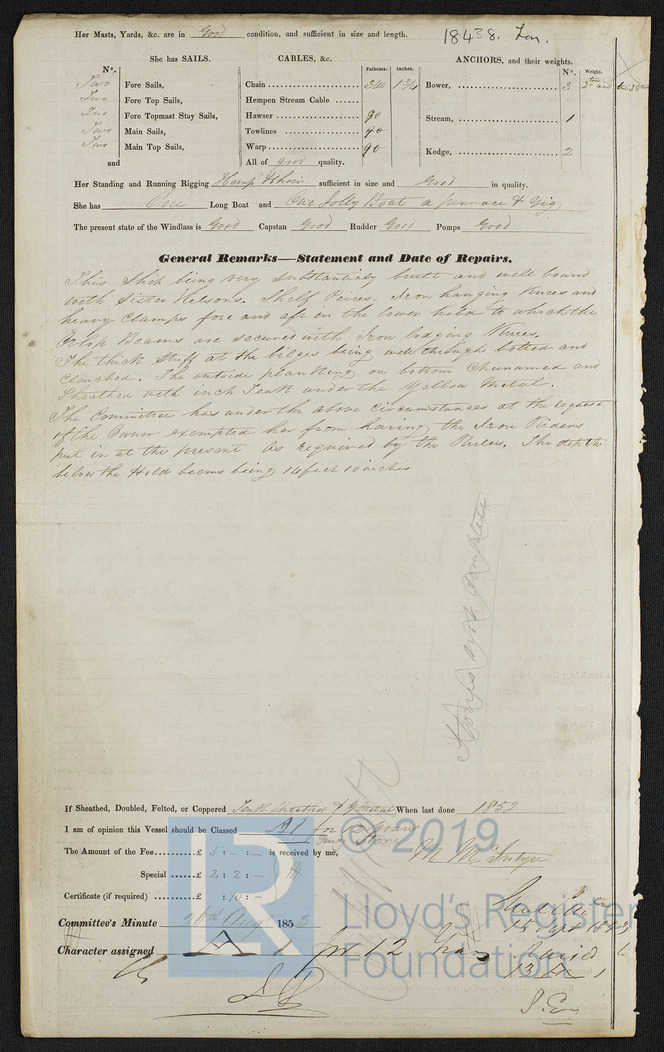 Her Masts, Yards, &c. are in Good condition, and sufficient in size and length.
18438. Lon.
She has SAILS.
CABLES, &c.
ANCHORS, and their weights.
Nº.
Fathoms. Inches.
Nº. Weight.
Two Fore Sails,
Chain 300 1 3/4
Bower, 3
Two Fore Top Sails,
Hempen Stream Cable
Two Fore Topmast Stay Sails,
Hawser 90
Stream, 1
Two Main Sails,
Towlines 90
Two Main Top Sails,
Warp 90
Kedge, 2
and
All of good quality.
Her Standing and Running Rigging Hemp & Choir sufficient in size and Good in quality.
She has One Long Boat and One Jolly Boat a pinnace & Gig
The present state of the Windlass is Good Capstan Good Rudder Good Pumps Good
General Remarks—Statement and Date of Repairs.
This Ship being very substantialy built and well bound
with Sister Kelsons. Shelf Peices. Iron hanging Knees and
heavy Clamps fore and aft in the lower hold to which the
Orlop Beams are secured with Iron lodging Knees.
The thick stuff at the bilges being well through bolted and
Clenched. The outside planking on bottom Chunamed and
Sheathed with inch Teak under the Yellow Metal.
The Committee has under the above Circumstances at the request
of the Owner exempted her from having the Iron Riders
put in at the present as required by the Rules. The depth
below the Hold beams being 14 feet 10 inches
If Sheathed, Doubled, Felted, or Coppered Teak Sheathed & Y Metal When last done 1852
I am of opinion this Vessel should be Classed A1 for 12 Years
The Amount of the Fee £ 5 : - : - is received by me,
M McIntyre
Special £ 2 : 2 : -
Certificate (if required) £ : 10 : -
Committee's Minute 26th Aug 1853
Character assigned A 1 for 12 Years
© 2019
Lloyd's Register
Foundation